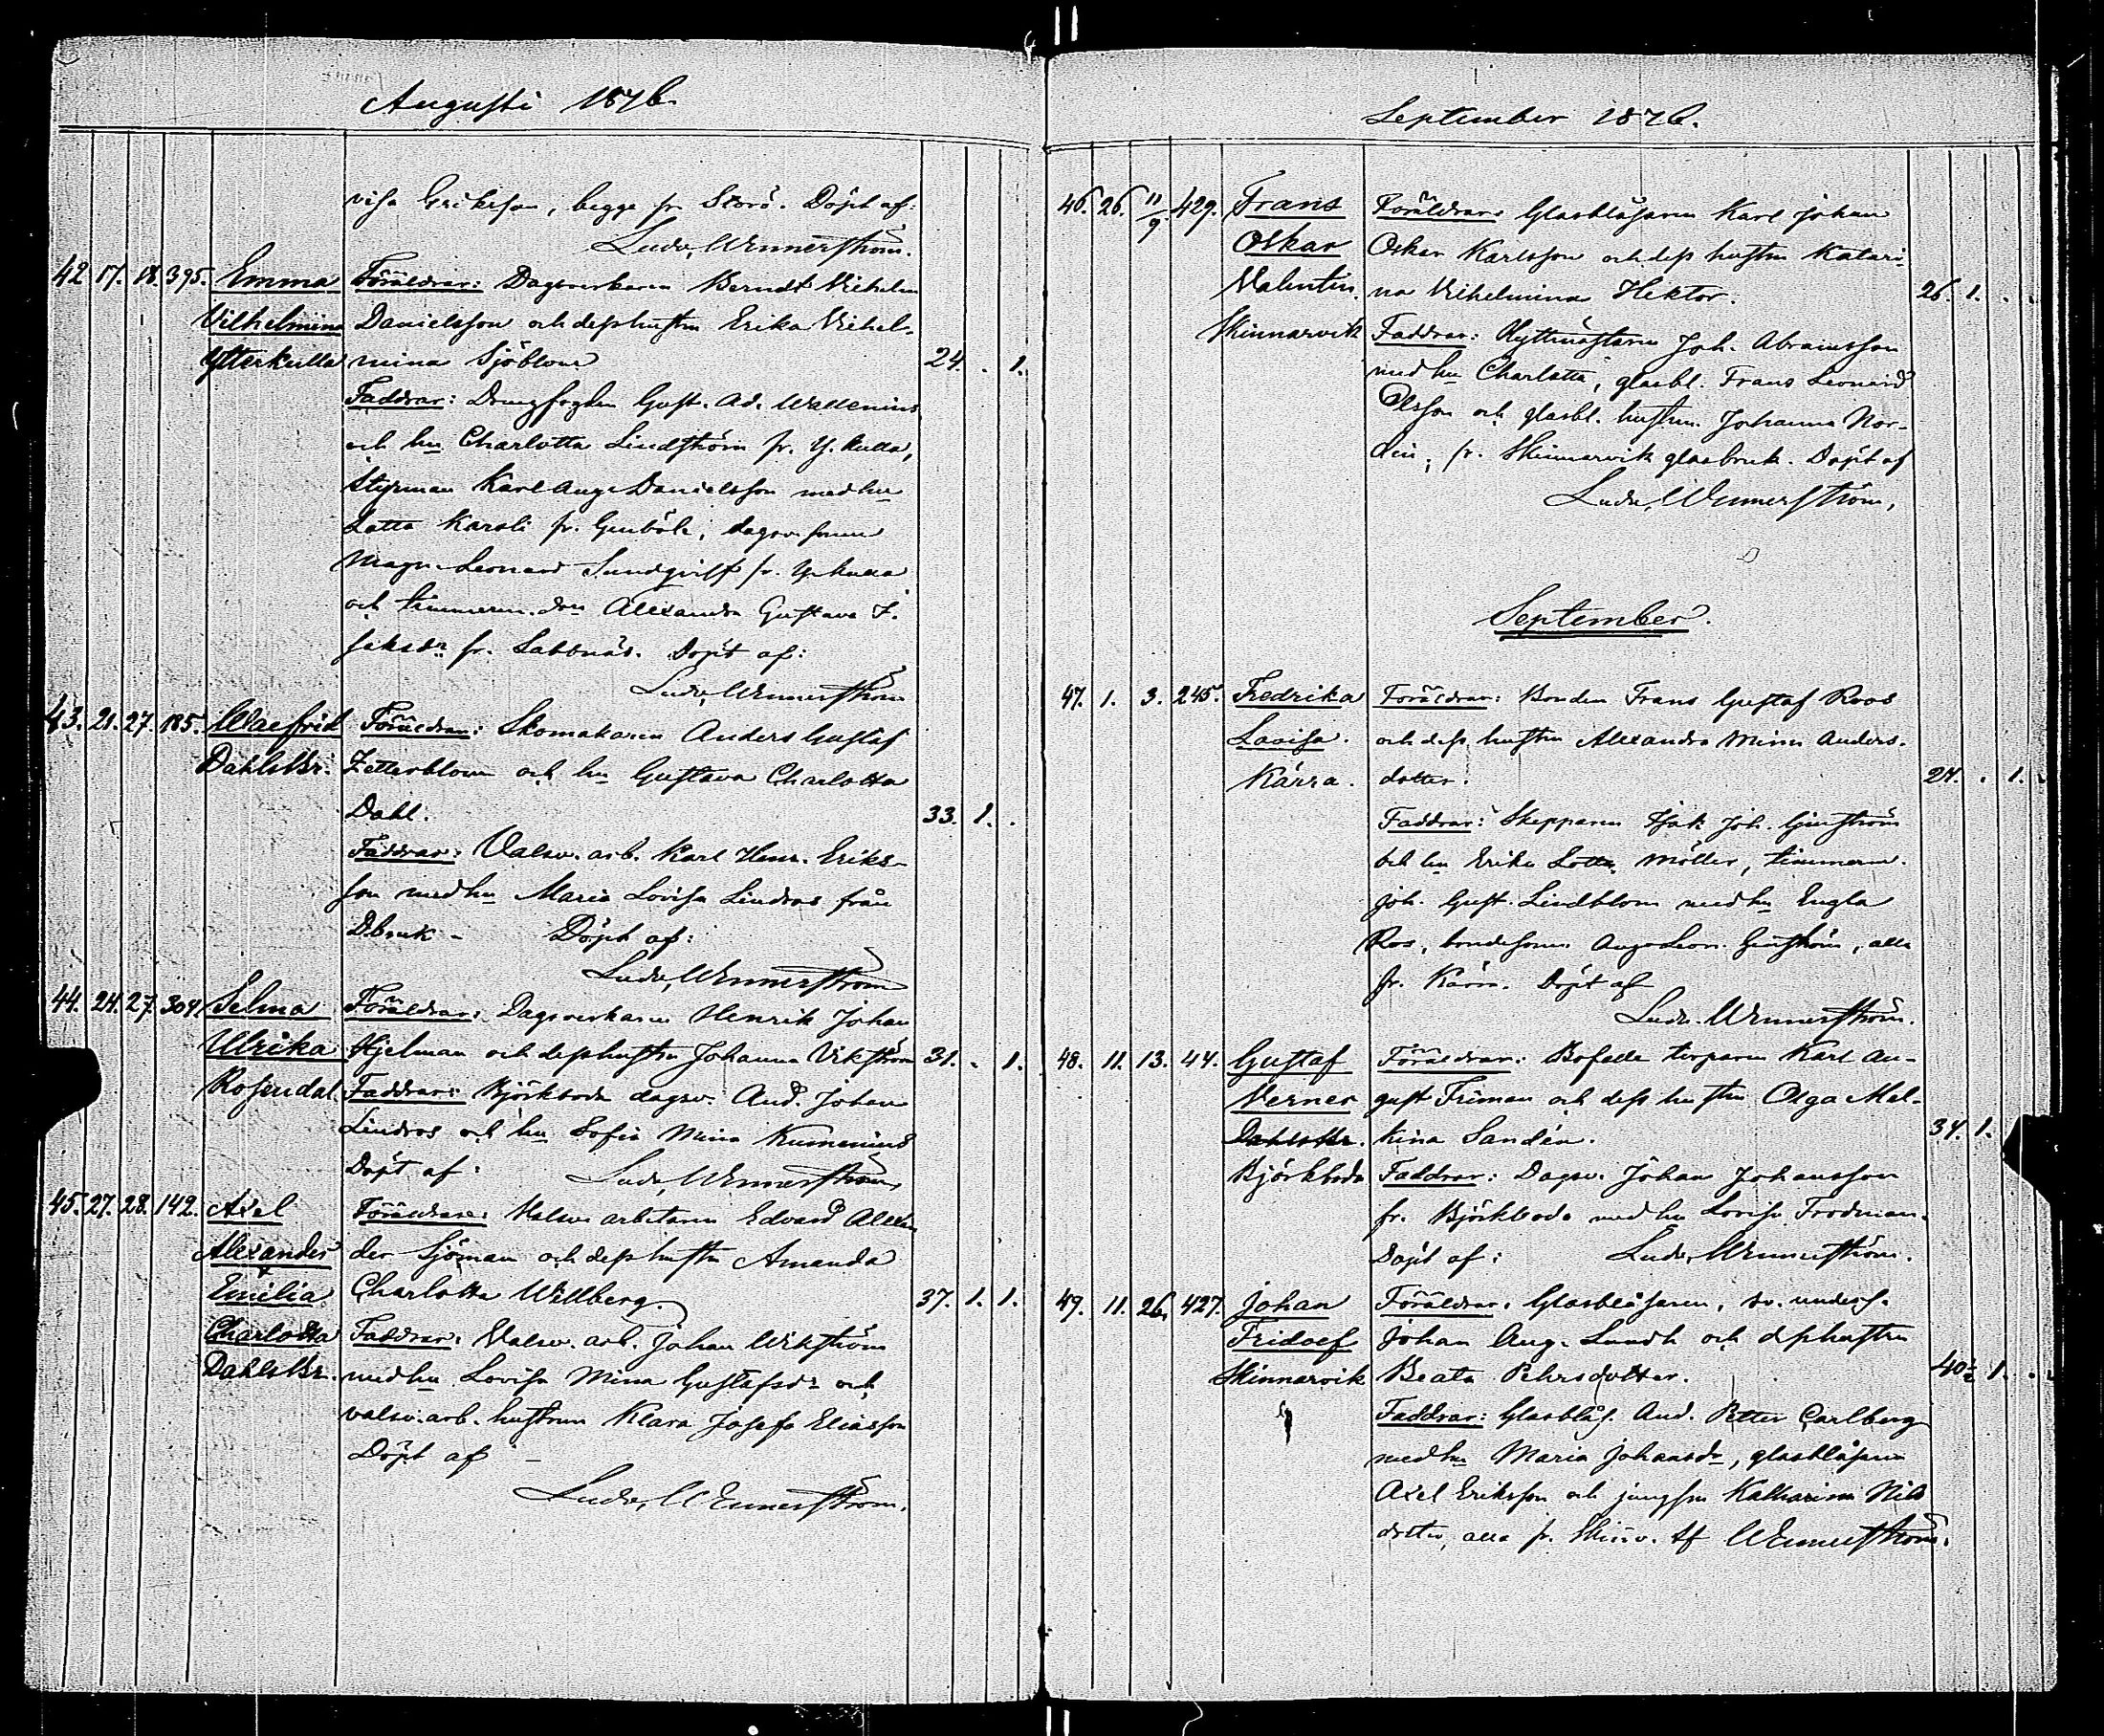 Augusti 1876.
visa Eriksson, begge fr Storö. Döpt af:
Ludv. Wennerström.
42 17. 18. 395. Emma Föräldrar: Dagsverkaren Berndt Vilhelm
Vilhelmina Danielsson och dess hustru Erika Vilhel-
Ytterkulla mina Sjöblom 24. . 1.
Faddrar: Drengfogden Gust. Ad. Wallenius
och hu Charlotta Lindström fr. Y. kulla,
Styrman Karl Aug. Danielsson med hu
Lotta Karoli fr. Genböle, dagsv. sonen
Magn. Leonard Sundqvist fr. Y. kulla
och timmerm. dotr Alexandra Gustava I-
saksdr fr. Labbnäs. Döpt af:
Ludv. Wennerström
43. 21. 27. 185. Walfrid Föräldrar: Skomakaren Anders Gustaf
Dahlsbr. Zetterblom och hu Gustava Charlotta
Dahl. 33. 1. .
Faddrar: Valsv. arb. Karl Henr. Eriks-
son med hu Maria Lovisa Lindros från
D.bruk - Döpt af:
Ludv. Wennerström
44. 24. 27. 304 Selma Föräldrar: Dagsverkaren Henrik Johan
Ulrika Hjelman och dess hustru Johanna Vikström 31. . 1.
Rosendal. Faddrar: Björkboda dagsv. And. Johan
Lindros och hu Sofia Mina Kumenius
Döpt af: Ludv. Wennerström
45. 27. 28. 142. Axel Föräldrar: Valsv. arbetaren Edvard Alexan
Alexander der Sjöman och dess hustru Amanda
Emilia Charlotta Wellberg. 37. 1. 1.
Charlotta Faddrar: Valsv. arb. Johan Wikström
Dahlsbr. med hu Lovisa Mina Gustafsdr och
valsv. arb. hustrun Klara Josefa Eliasson
Döpt af -
Ludv. Wennerström.
September 1876.
46. 26. 11/9. 429. Frans Föräldrar: Glasblåsaren Karl Johan
Oskar Oskar Karlsson och dess hustru Katari-
Valentin. na Vilhelmina Hektor. 26. 1. . .
Skinnarvik Faddrar: Hyttmästaren Joh. Abramsson
med hu Charlotta, glasbl. Frans Leonard
Olsson och glasbl. hustrun Johanna Nor-
din, fr. Skinnarvik glasbruk. Döpt af
Ludv. Wennerström,
September.
47. 1. 3. 245. Fredrika Föräldrar: Bonden Frans Gustaf Roos
Lovisa. och dess hustru Alexandra Mina Anders-
Kärra. dotter. 24. . 1.
Faddrar: Skepparen Isak Joh. Genström
och hu Erika Lotta Möller, timmerm.
Joh. Gust. Lindblom med hu Engla
Ros, bondesonen Aug. Leon. Genström, alla
fr. Kärra. Döpt af
Ludv. Wennerström.
48. 11. 13. 44. Gustaf Föräldrar: Bofelle torparen Karl Au-
Verner gust Friman och dess hustru Olga Mal-
Dahlsbr. kina Sandén. 34. 1.
Björkboda Faddrar: Dagsv. Johan Johansson
fr. Björkboda med hu Lovisa Frodman.
Döpt af: Ludv. Wennerström.
49. 11. 26. 427. Johan Föräldrar: Glasblåsaren, sv. unders.
Fridolf Johan Aug. Lundh och dess hustru
Skinnarvik Beata Pehrsdotter. 40½ 1. . .
Faddrar: Glasblås. And. Petter Carlberg
med hu Maria Johansdr, glasblåsaren
Axel Eriksson och jungfrun Katharina Nils
dotter, alla fr. Skinv. Af Wennerström.